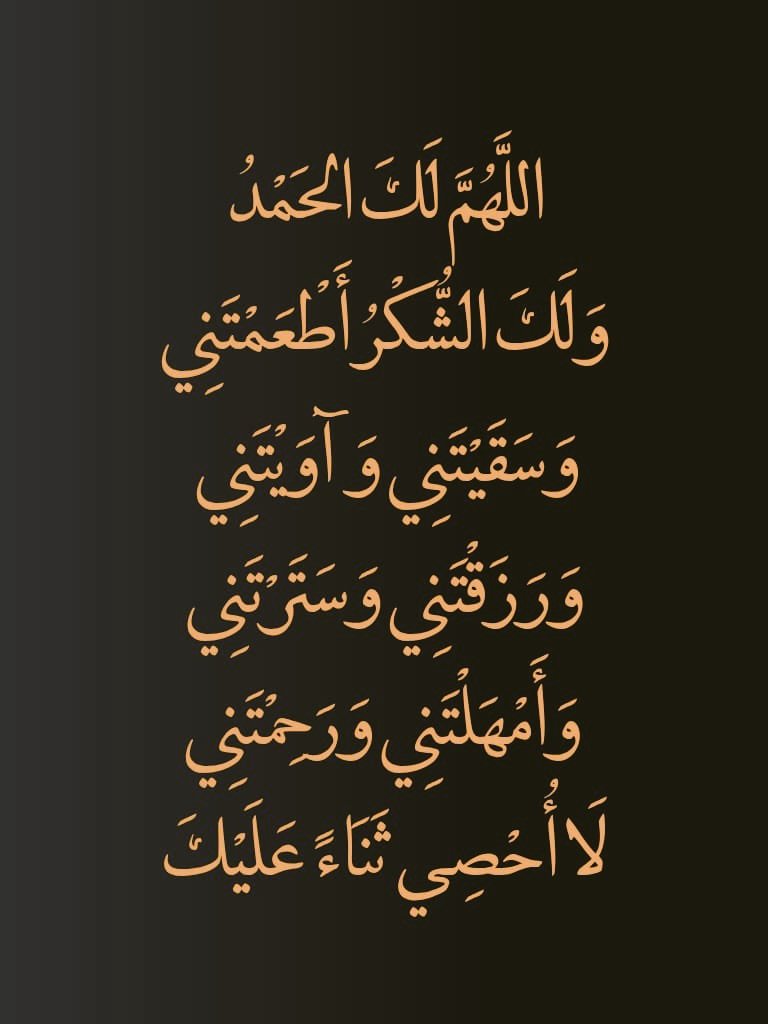 اللَّهُمَّ لَكَ الحَمْدُ
وَلَكَ الشُّكْرُ أَطْعَمْتَنِي
وَسَقَيْتَنِي وَآوَيْتَنِي
وَرَزَقْتَنِي وَسَتَرْتَنِي
وَأَمْهَلْتَنِي وَرَحِمْتَنِي
لَا أُحْصِي ثَنَاءً عَلَيْكَ